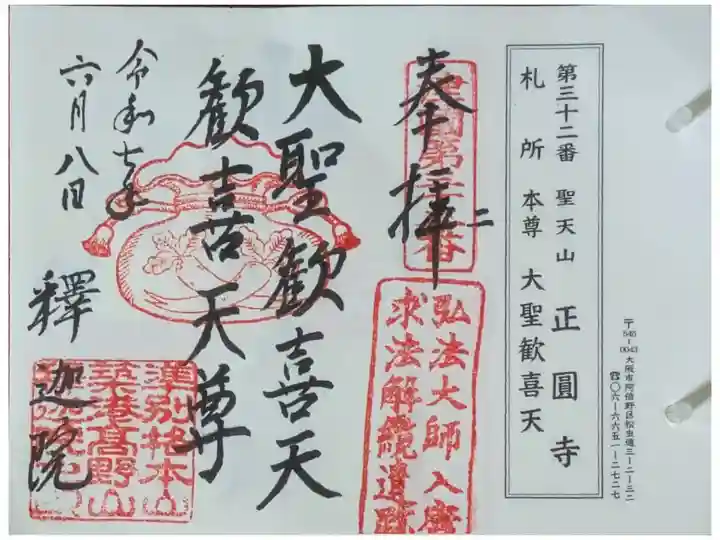 第三十二番 聖天山 正圓寺
札所本尊 大聖歓喜天
〒545-0043 大阪市阿倍野区松虫通三-二-三二
☎〇六-六六五一-二七二七
奉拝
二
弘法大師入唐
求法解纜遺跡
大聖歓喜天
歓喜天尊
令和七年
六月八日
釋迦院
準別格本
築港高野